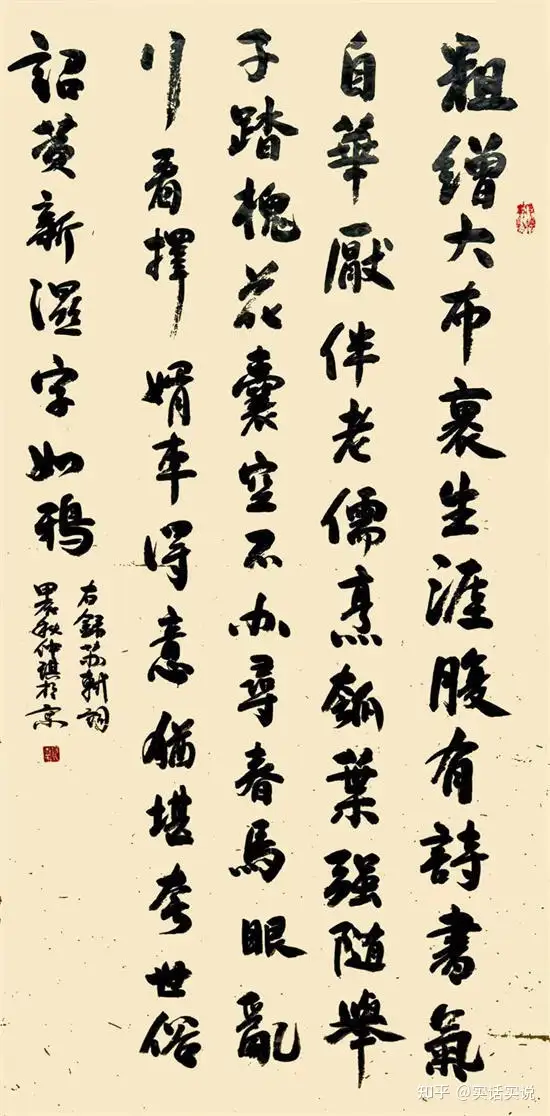 粗繒大布裹生涯腹有詩書氣
自華厭伴老儒烹瓠葉强随舉
子踏槐花囊空不办尋春馬眼亂
行看擇婿車得意猶堪夸世俗
詔黄新濕字如鴉
右録苏軾詞
甲辰秋仲琪於京
知乎 @实话实说